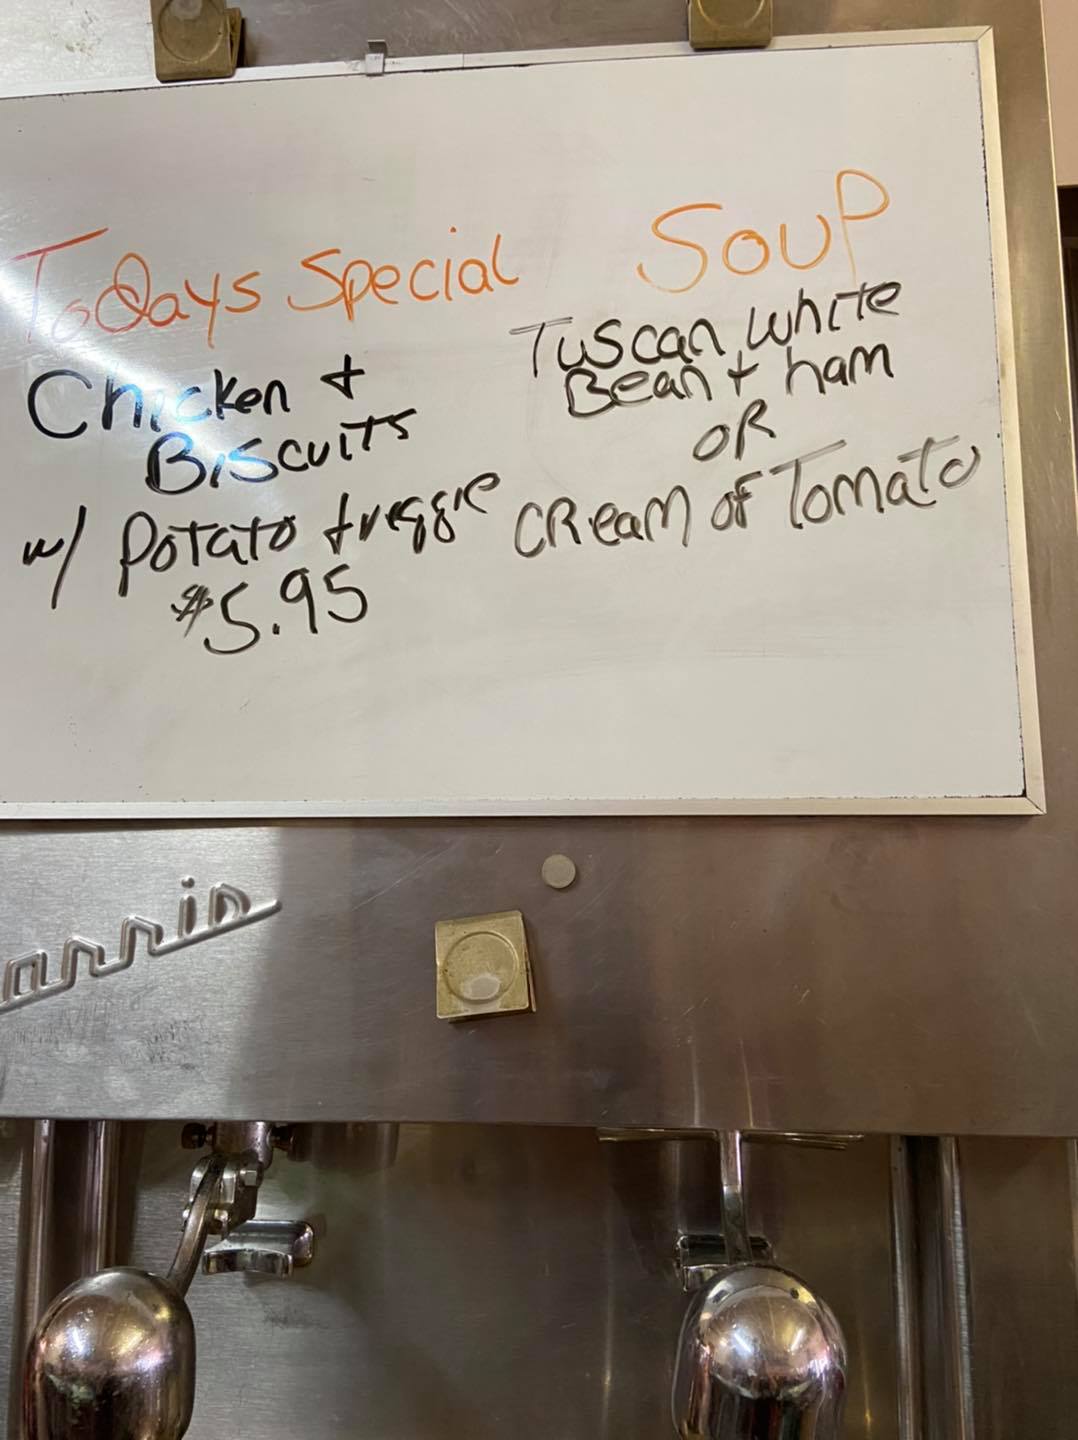 Todays Special
Chicken +
Biscuits
w/ Potato + veggie
$5.95
Soup
Tuscan White
Bean + ham
OR
CReam of Tomato
arris